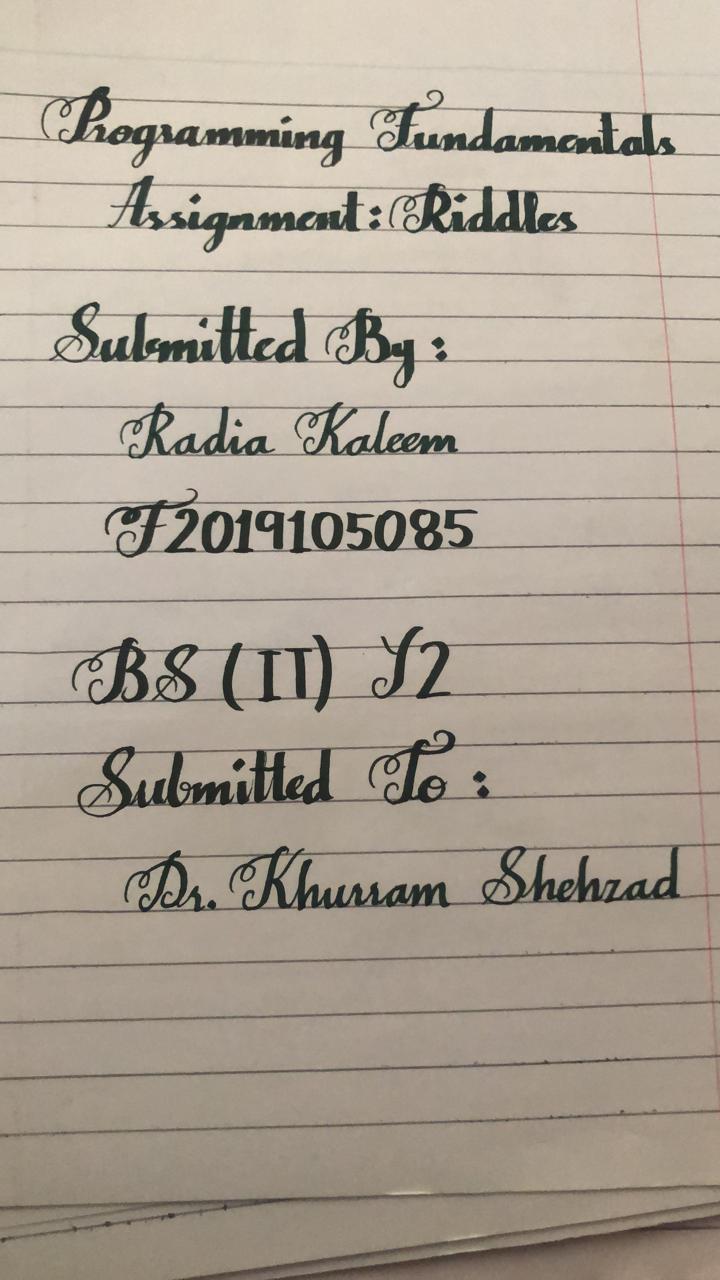 Programming Fundamentals
Assignment: Riddles
Submitted By :
Radia Kaleem
F2019105085
BS (IT) Y2
Submitted To :
Dr. Khurram Shehzad